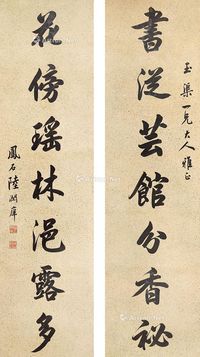 玉渠一兄大人雅正
書從芸館分香祕
花傍瑶林浥露多
鳳石陸潤庠